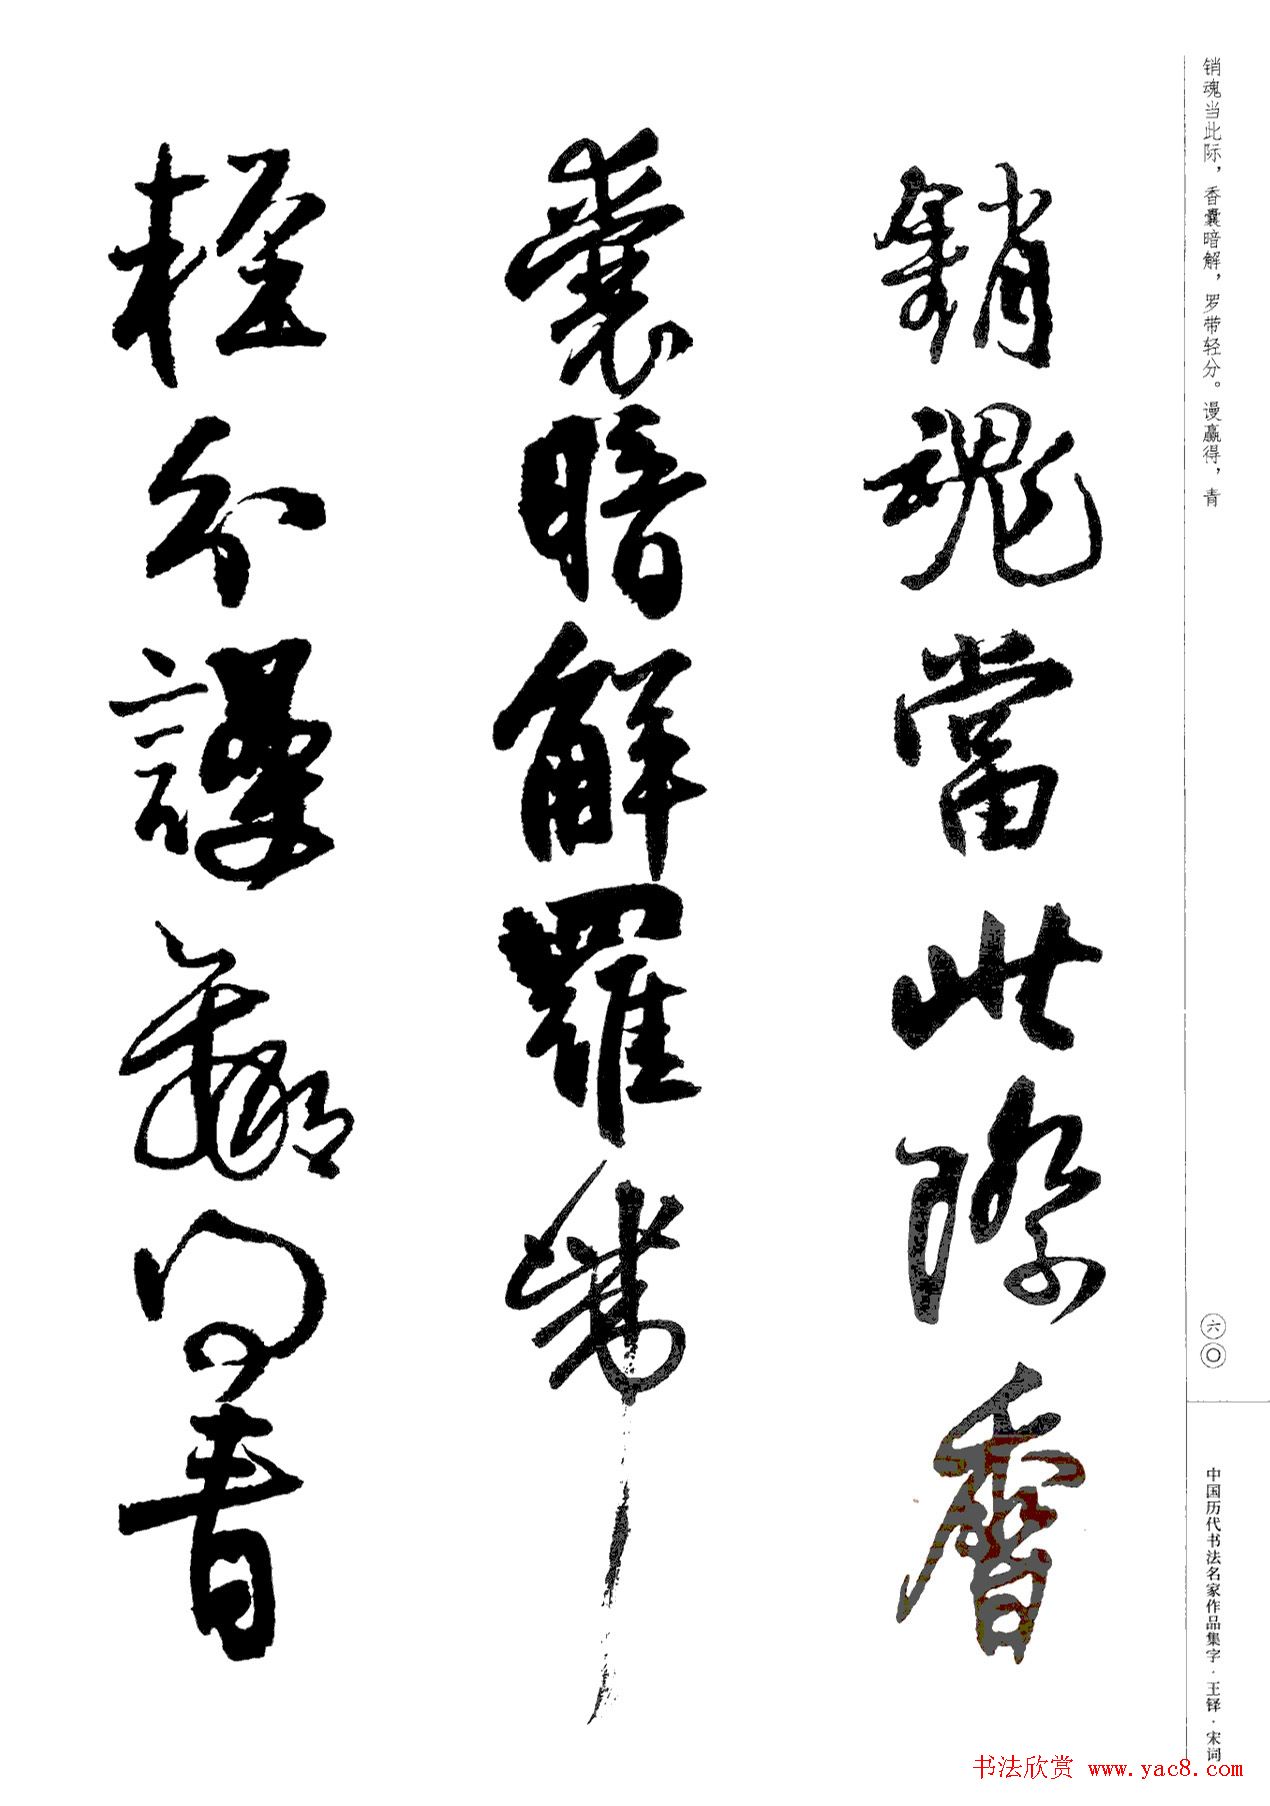 销魂当此际，香囊暗解，罗带轻分。谩赢得，青
銷魂當此際香
囊暗解羅帶
輕分謾贏得青
六〇
中国历代书法名家作品集字·王铎·宋词
书法欣赏 www.yac8.com